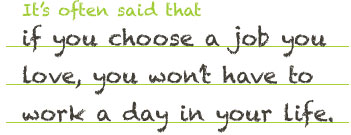 It's often said that
if you choose a job you
love, you won't have to
work a day in your life.